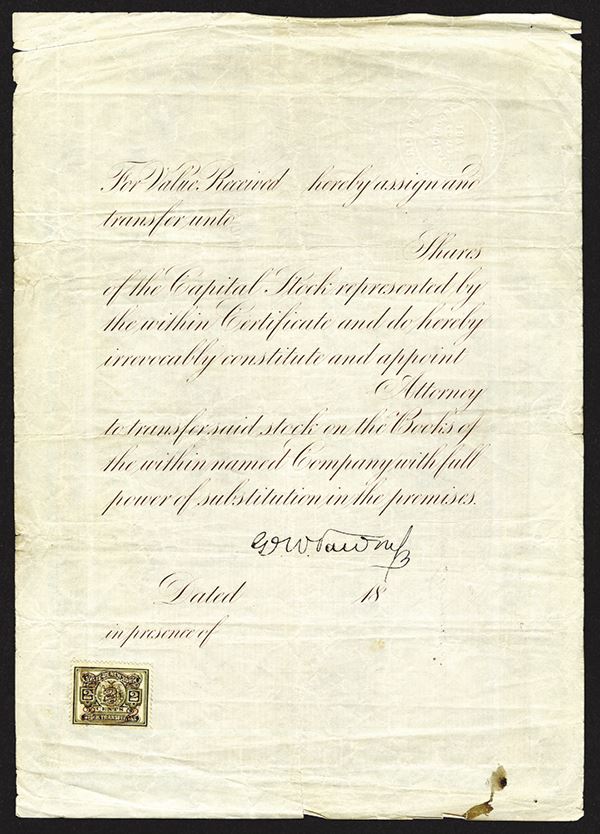 For Value Received hereby assign and
transfer unto
Shares
of the Capital Stock represented by
the within Certificate and do hereby
irrevocably constitute and appoint
Attorney
to transfer said stock on the Books of
the within named Company with full
power of substitution in the premises.
G. W.
Dated 18
in presence of
2 2
CENTS
STOCK TRANSFER